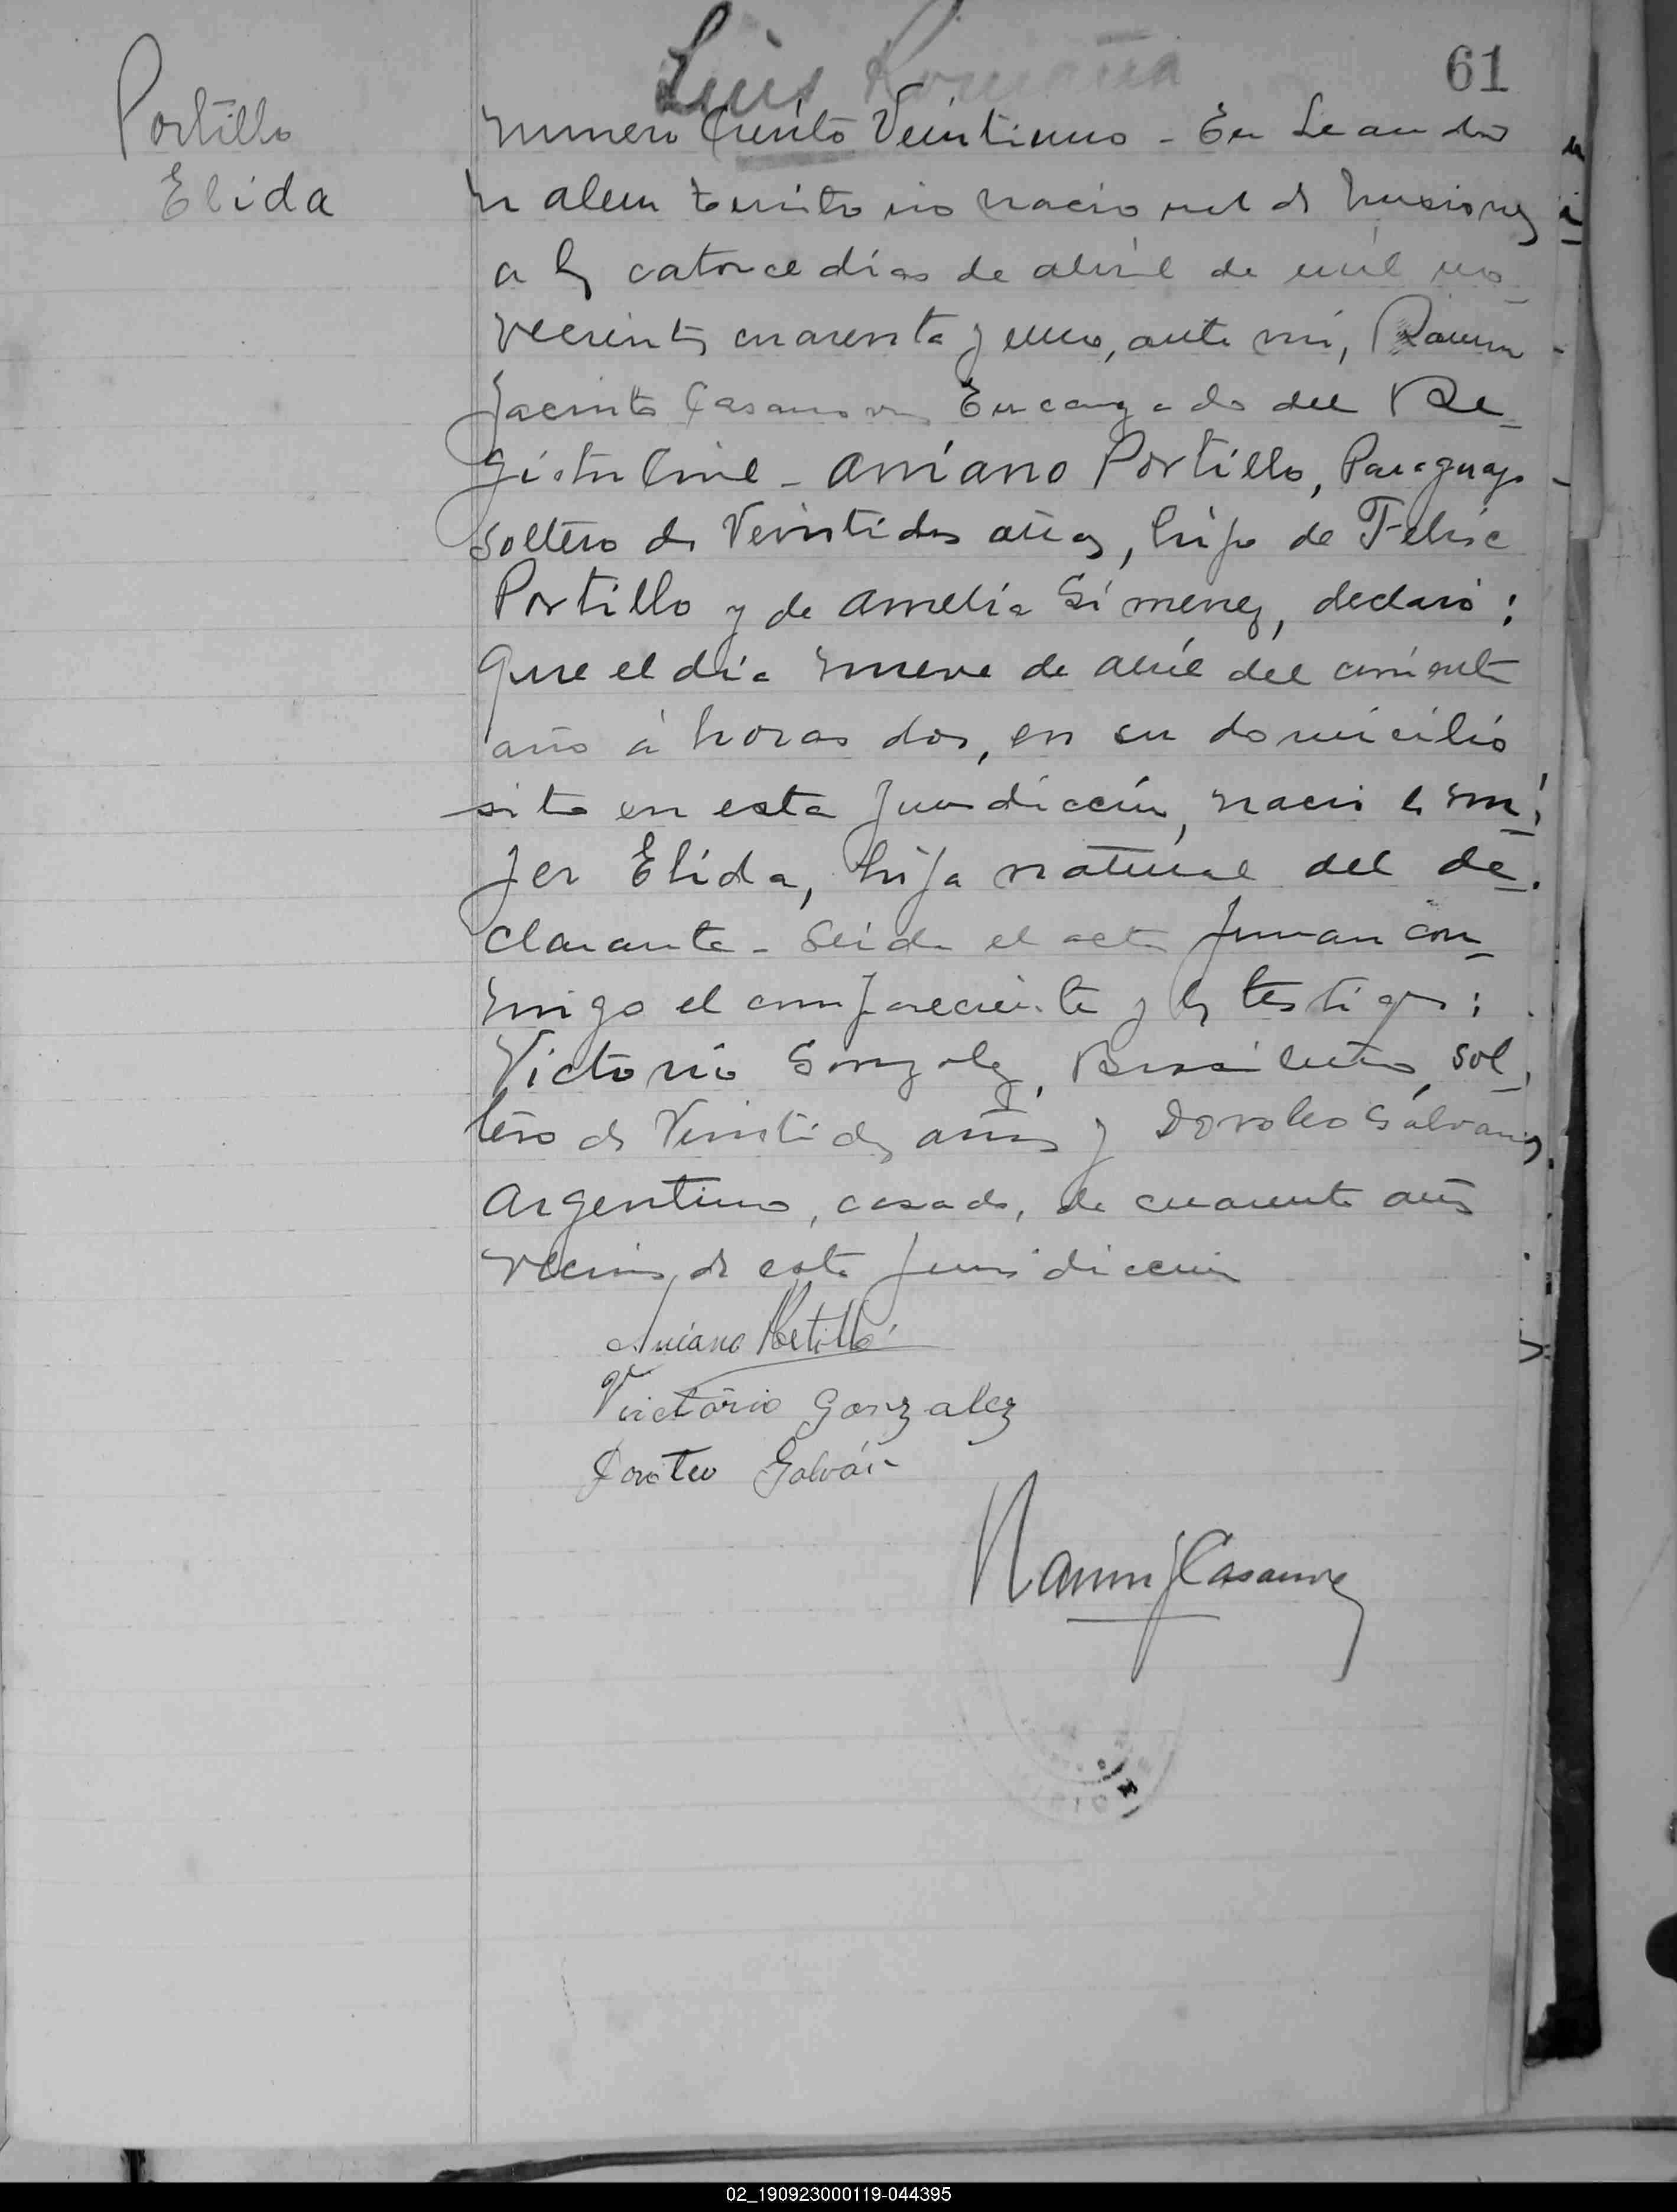 Luis Romaña
61
Portillo
Elida
Numero Ciento Veintiuno - En Leandro
N alem territorio nacional de Misiones
a los catorce dias de abril de mil no
vecientos cuarenta y uno, ante mi, Ramon
Jacinto Casanova Encargado del Re
gistro Civil - Aniano Portillo, Paraguayo
soltero de Veintidos años, hijo de Felix
Portillo y de Amelia Gimenez, declaró:
Que el dia nueve de abril del corriente
año á horas dos, en su domicilio
sito en esta Jurisdiccion, nacio la mu
jer Elida, hija natural del de
clarante - Leida el acta firman con
migo el compareciente y los testigos:
Victorio Gonzalez, Brasileño, sol
tero de Veintidos años y Doroteo Galván
Argentino, casado, de cuarenta años
vecinos de esta Jurisdiccion
Aniano Portillo
Victório Gonzalez
Doroteo Galván
Ramon J Casanova
02_190923000119-044395